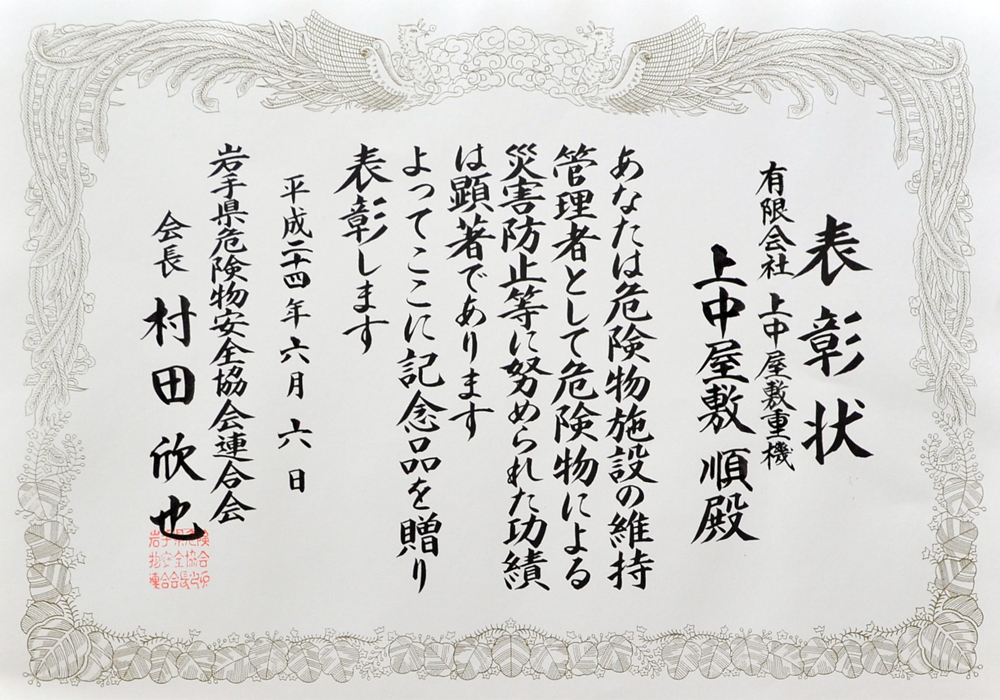 表彰状
有限会社 上中屋敷重機
上中屋敷 順殿
あなたは危険物施設の維持
管理者として危険物による
災害防止等に努められた功績
は顕著であります
よってここに記念品を贈り
表彰します
平成二十四年六月六日
岩手県危険物安全協会連合会
会長 村田欣也
岩手県危険
物安全協会
連合会長之印